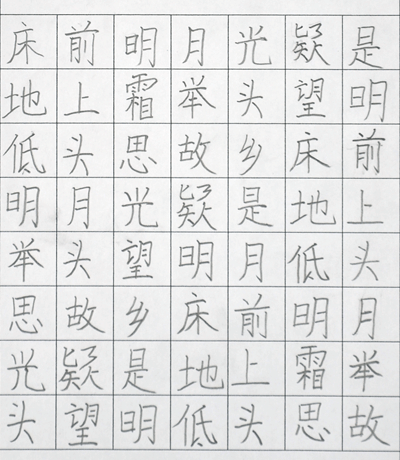 床前明月光疑是
地上霜举头望明
低头思故乡床前
明月光疑是地上
举头望明月低头
思故乡床前明月
光疑是地上霜举
头望明低头思故